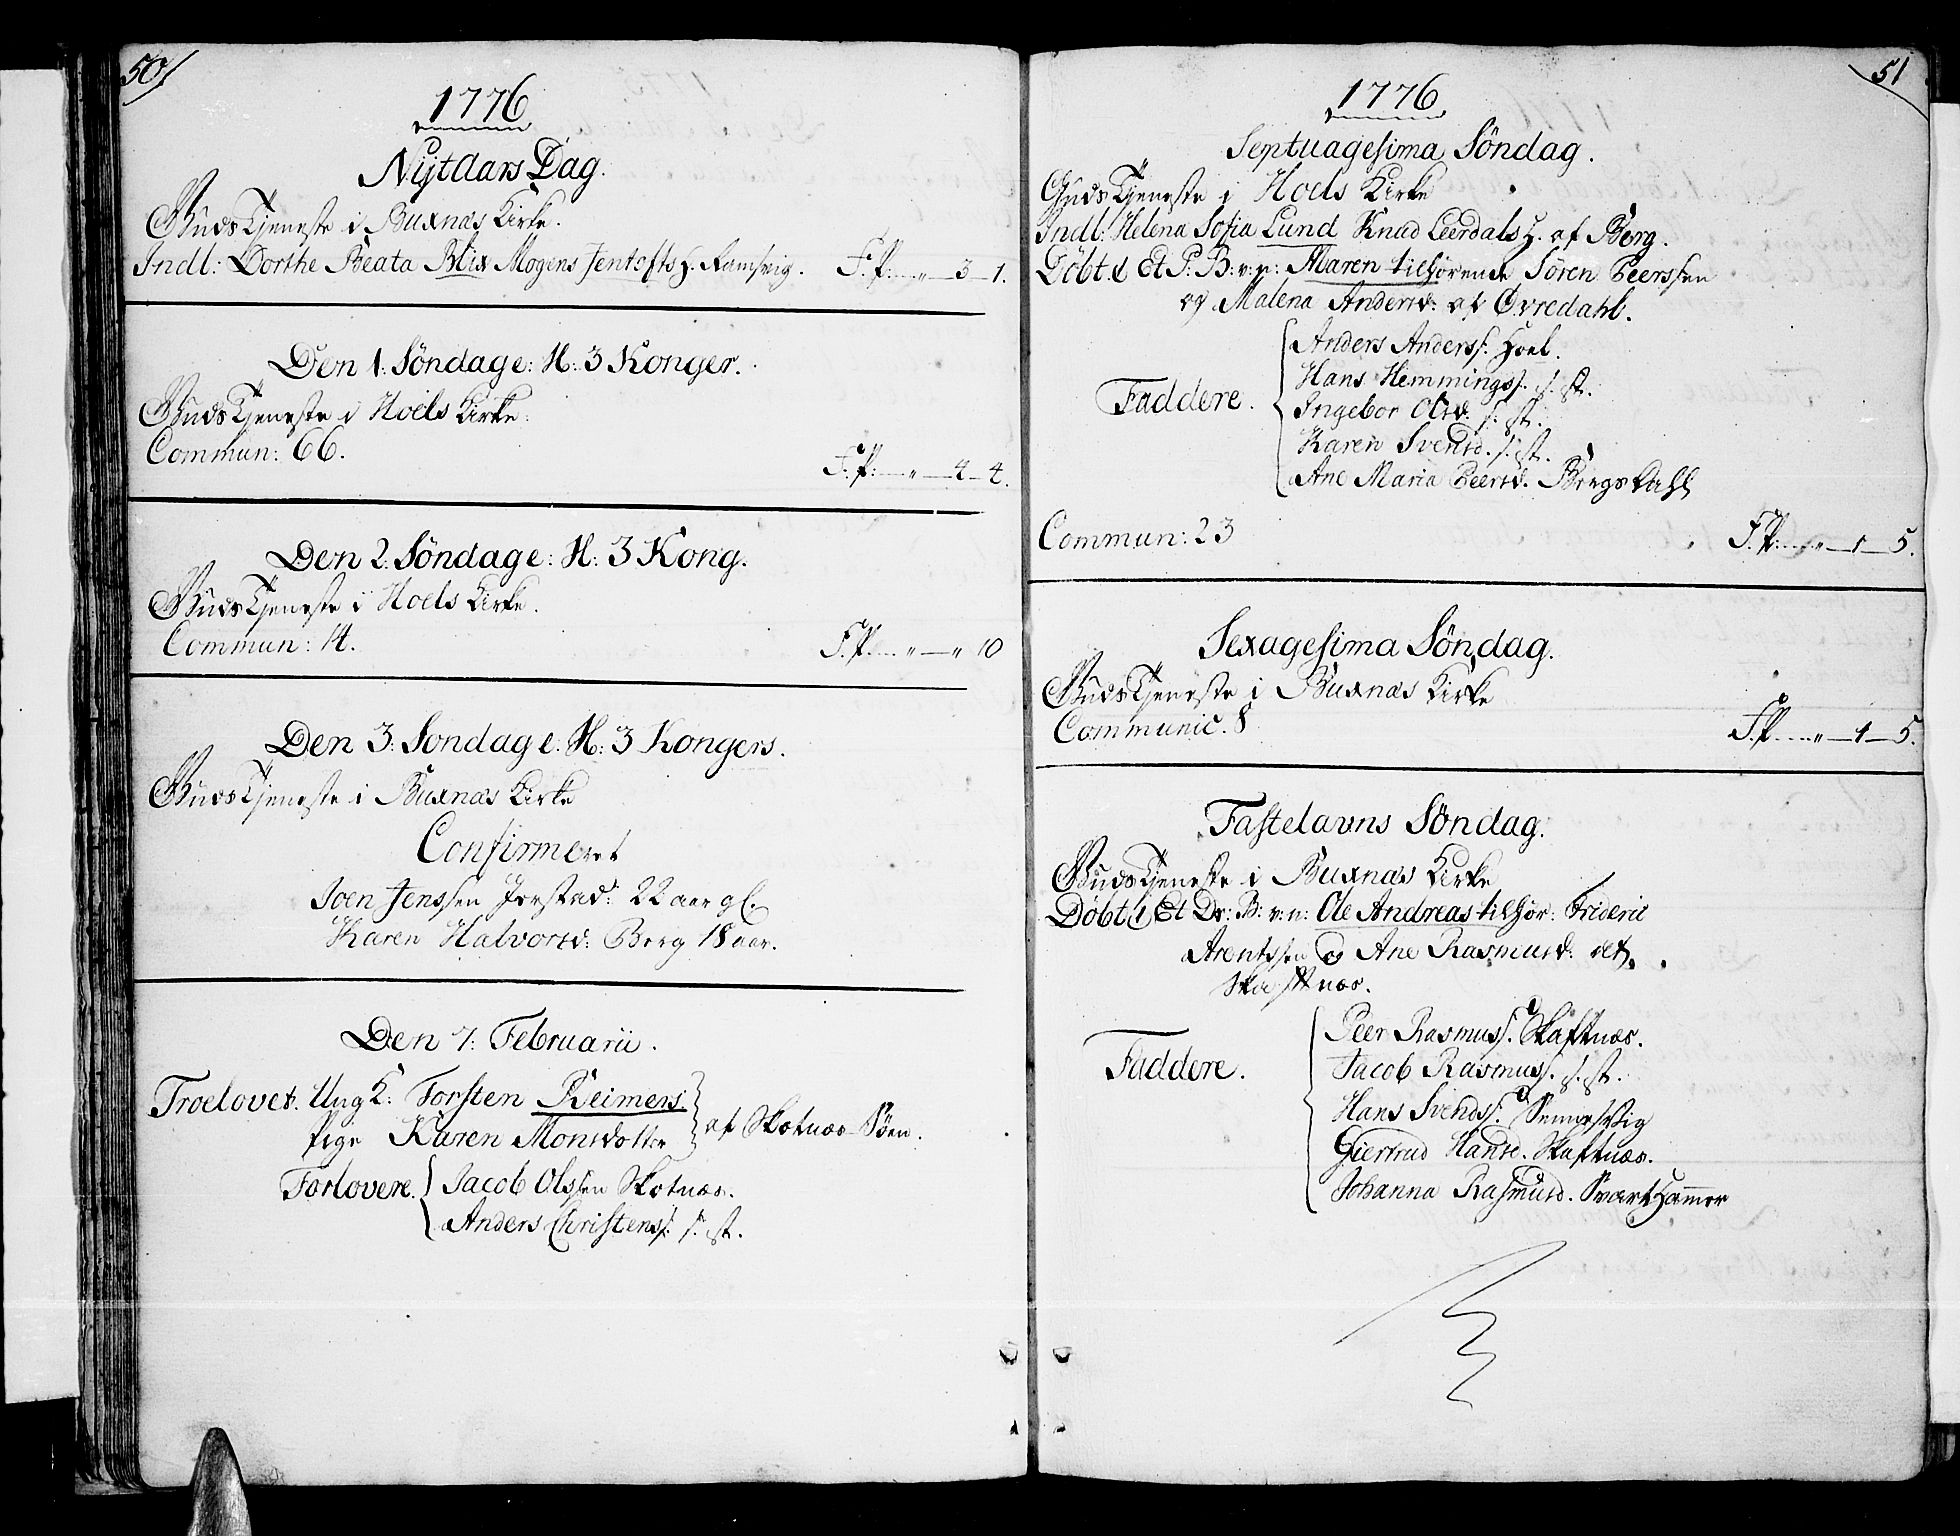 50/
1776
Nÿtdars Dag.
Guds Tjeneste i Buxnæs Kirke.
Indl: Dorthe Beata Blix Mogens Jentofts H. Ramsvig. F. P: „ 3 1.
Den 1. Söndag e: H: 3 Konger.
Guds Tjeneste i Hoels Kirke.
Commun: 66. F. P: „ 4 4.
Den 2. Söndag e: H: 3 Kong.
Guds Tjeneste i Hoels Kirke.
Commun: 14. F. P. „ „ 10
Den 3: Söndag e. H: 3 Kongers.
Guds Tjeneste i Buxnæs Kirke
Confirmeret
Joen Jenssen Jorstad: 22 aar gl.
Karen Halvorsd: Berg 18 aar.
Den 7: Februarii.
Troelovet. Ung K: Torsten Reimers.
Pige Karen Monsdotter } af Skotnæs Söen.
Forlovere. { Jacob Olssen Skotnæs.
Anders Christens: s. st.
51
1776.
Septuagesima Söndag.
Guds Tjeneste i Hoels Kirke
Indl: Helena Sofia Lund Knud Leerdals H. af Berg.
Döbt.d Et P: B: v: n: Maren tilhørende Sören Peerssen
og Malena Andersd: af Øvredahl.
Faddere. { Anders Anderss: Hoel.
Hans Hemmingss. s. st.
Ingebor Olsd. s: st.
Karen Svensd. s. st.
Ane Maria Peersd. Borgs Dahl
Commun: 23 F. P: „ 1 5.
Sexagesima Söndag.
Guds Tjeneste i Buxnæs Kirke
Communic. 8 F. P. „ 1 5.
Fastelavns Söndag.
Guds Tjeneste i Buxnæs Kirke
Döbt Et Dr: B: v: n: Ole Andreas tilhör: Frideric
Arentssen og Ane Rasmusd:
Skaftnæs.
Faddere. { Peer Rasmuss. Skaftnæs.
Jacob Rasmuss. s. st.
Hans Svendss.
Giertrud Hansd. Skaftnæs.
Johanna Rasmusd. Svarthammer